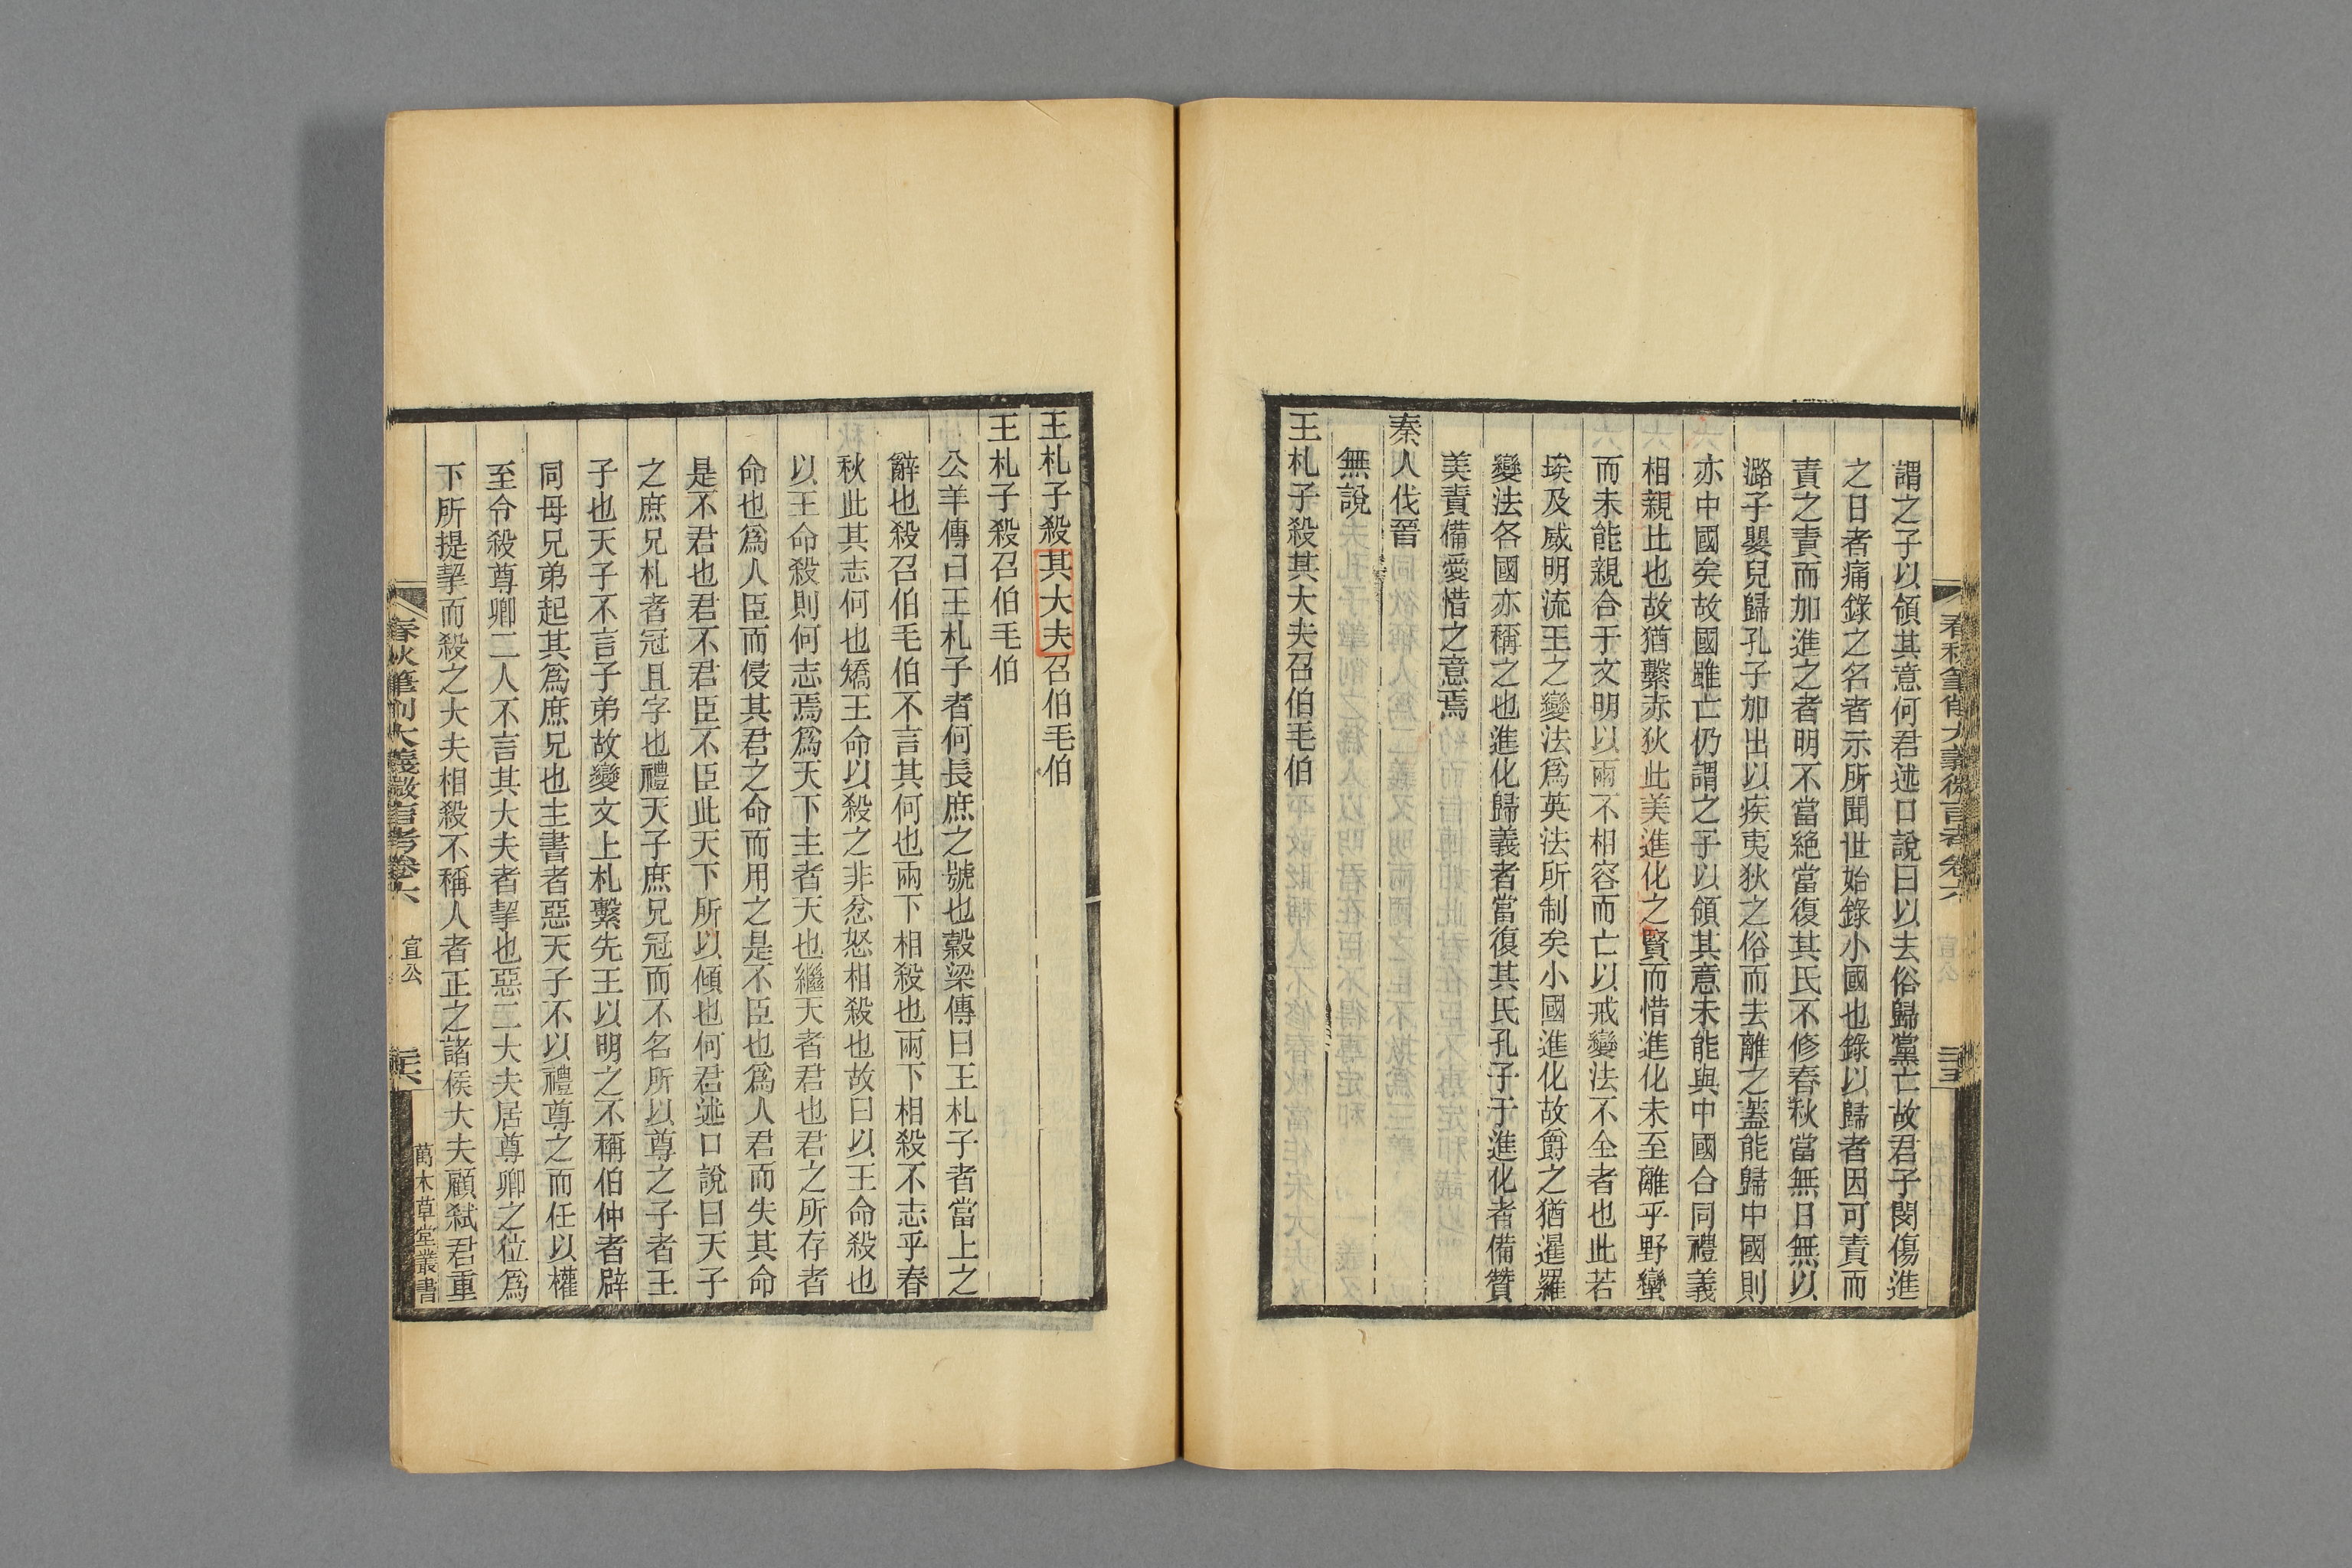 謂之子以領其意何君述口說曰以去俗歸黨亡故君子閔傷進
之日者痛錄之名者示所聞世始錄小國也錄以歸者因可責而
責之責而加進之者明不當絕當復其氏不修春秋當無日無以
潞子嬰兒歸孔子加出以疾夷狄之俗而去離之蓋能歸中國則
亦中國矣故國雖亡仍謂之子以領其意未能與中國合同禮義
相親比也故猶繫赤狄此美進化之賢而惜進化未至離乎野蠻
而未能親合于文明以兩不相容而亡以戒變法不全者也此若
埃及威明流王之變法爲英法所制矣小國進化故爵之猶暹羅
變法各國亦稱之也進化歸義者當復其氏孔子于進化者備贊
美責備愛惜之意焉
秦人伐晉
無說
王札子殺其大夫召伯毛伯
春秋筆削大義微言考卷六 宣公 三十五
王札子殺其大夫召伯毛伯
王札子殺召伯毛伯
公羊傳曰王札子者何長庶之號也穀梁傳曰王札子者當上之
辭也殺召伯毛伯不言其何也兩下相殺也兩下相殺不志乎春
秋此其志何也矯王命以殺之非忿怒相殺也故曰以王命殺也
以王命殺則何志焉爲天下主者天也繼天者君也君之所存者
命也爲人臣而侵其君之命而用之是不臣也爲人君而失其命
是不君也君不君臣不臣此天下所以傾也何君述口說曰天子
之庶兄札者冠且字也禮天子庶兄冠而不名所以尊之子者王
子也天子不言子弟故變文上札繫先王以明之不稱伯仲者辟
同母兄弟起其爲庶兄也主書者惡天子不以禮尊之而任以權
至令殺尊卿二人不言其大夫者挈也惡二大夫居尊卿之位爲
下所提挈而殺之大夫相殺不稱人者正之諸侯大夫顧弒君重
春秋筆削大義微言考卷六 宣公 三十六 萬木草堂叢書